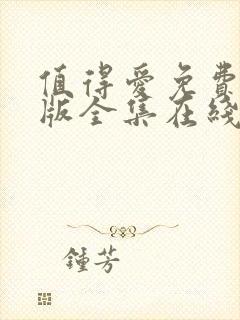 值得爱免费
版全集在线
鍾芳